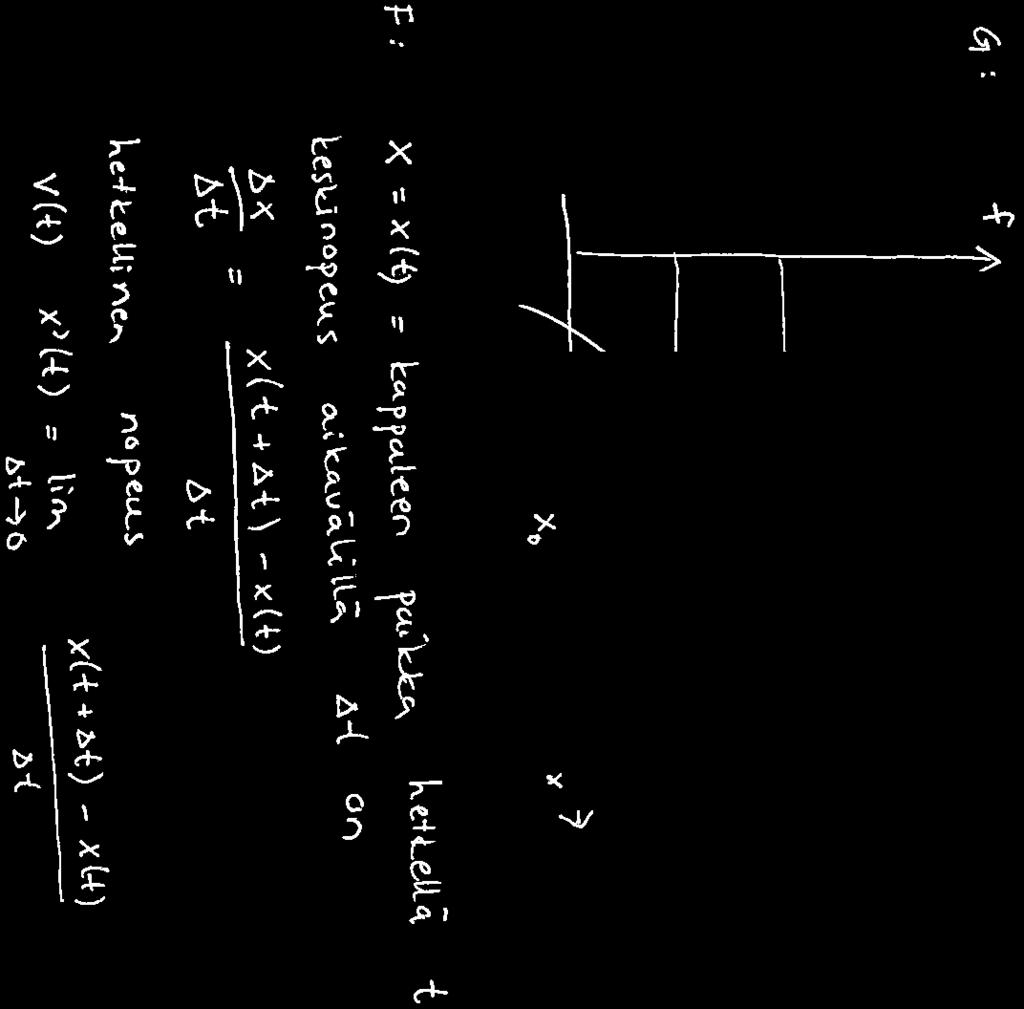 G:
f
x₀
x
F: x = x(t) = kappaleen paikka hetkellä t
keskinopeus aikavälillä Δt on
Δx/Δt = (x(t + Δt) - x(t))/Δt
hetkellinen nopeus
v(t) x'(t) = lim Δt→0 (x(t + Δt) - x(t))/Δt